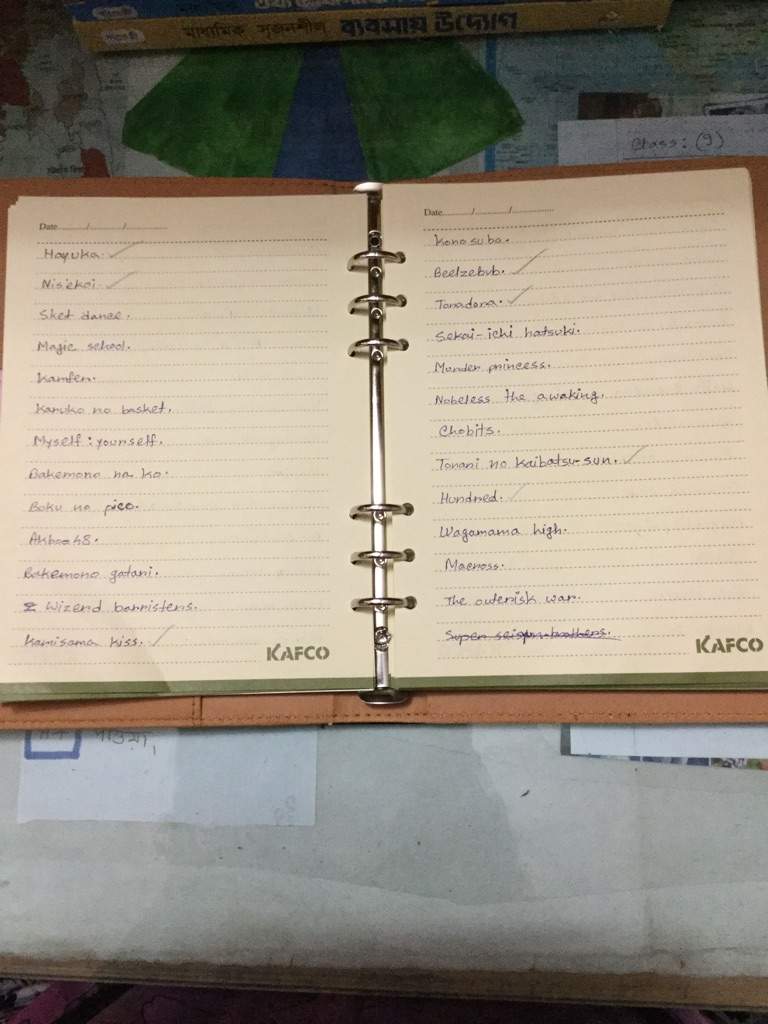 মাধ্যমিক সৃজনশীল ব্যবসায় উদ্যোগ
Class: (9)
Date........./........./...............
Hayuka.
Nisekoi
Sket dance.
Magic school.
Kamfer.
Karuko no basket.
Myself : yourself.
Bakemono na ko.
Boku no pico.
Akb048.
Bakemono gatari.
Wizerd barristers.
Kamisama kiss.
KAFCO
Date........./........./...............
Konosuba.
Beelzebub.
Toradora.
Sekai-ichi hatsuki.
Murder princess.
Nobeless the awaking.
Chobits.
Tonari no kaibatsu-sun.
Hundred.
Wagamama high.
Macross.
The outerisk war.
Super seisyun brothers.
KAFCO